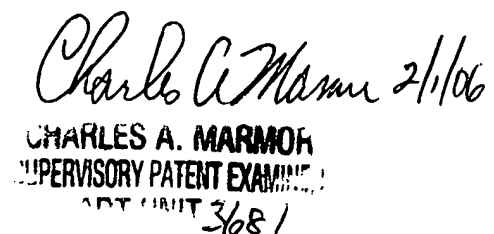 Charles A Marmor 2/1/06
CHARLES A. MARMOR
SUPERVISORY PATENT EXAMINER
ART UNIT 3681